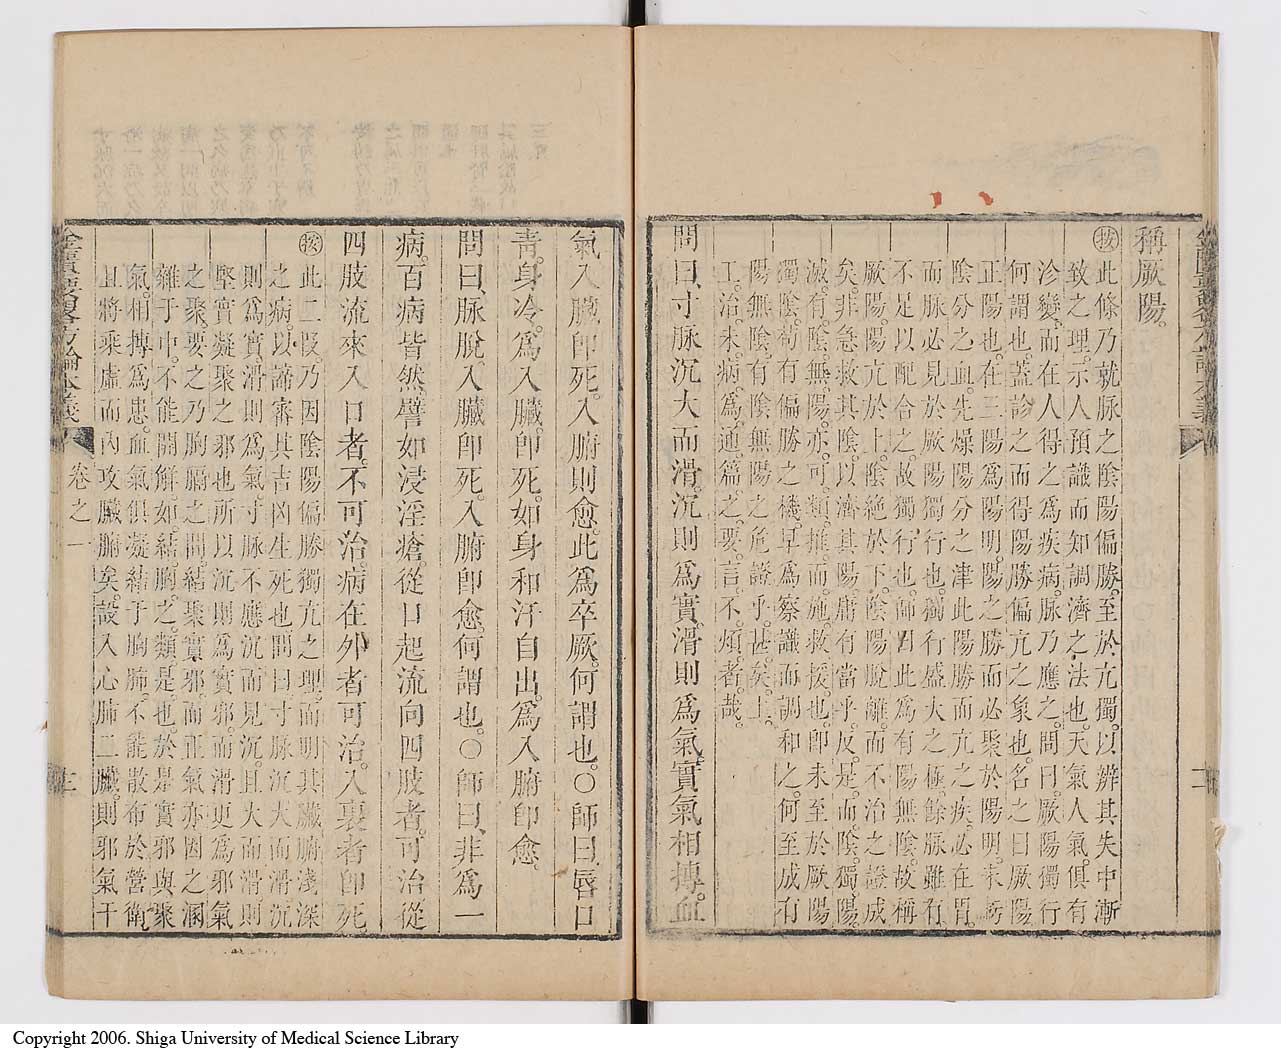 稱厥陽。
㊢此條乃就脉之陰陽偏勝。至於亢獨。以辨其失中漸
致之理。示人預識而知調濟之法也。天氣人氣。俱有
沴變。而在人得之為疾病。脉乃應之。問曰。厥陽獨行
何謂也。蓋診之而得陽勝偏亢之象也。名之曰厥陽
正陽也。在三陽為陽明。陽之勝而必聚於陽明。未
陰分之血。先燥陽分之津。此陽勝而亢之疾。必在胃。
而脉必見於厥陽獨行也。獨行盛大之極。餘脉雖有
不足以配合之。故獨行也。師因此為有陽無陰。故稱
厥陽。陽亢於上。陰絶於下。陰陽脫離。而不治之證成
矣。非急救其陰。以濟其陽。庸有當乎。反是。而陰。獨陽。
滅。有。陰。無。陽。亦。可。類。推。而。施。救。援。也。卽未至於厥陽
獨陰。苟有偏勝之機。早為察識而調和之。何至成有
陽無陰。有陰無陽之危證乎。甚矣。上。
工。治。未。病。為。通。篇。之。要。言。不。煩。者。哉。
問曰、寸脉沉大而滑。沉則為實。滑則為氣。實氣相摶。血
氣入臟卽死。入腑則愈。此為卒厥。何謂也。○師曰、唇口
青。身冷。為入臟。卽死。如身和汗自出。為入腑卽愈。
問曰、脉脫。入臟卽死。入腑卽愈。何謂也。○師曰、非為一
病。百病皆然。譬如浸淫瘡。從口起流向四肢者。可治從
四肢流來入口者。不可治。病在外者可治。入裏者卽死
㊢此二段。乃因陰陽偏勝獨亢之理。而明其臟腑淺深
之病。以諦審其吉凶生死也問曰寸脉沉大而滑沉
則為實。滑則為氣。寸脉不應沉而見沉。且大而滑則
堅實凝聚之邪也所以沉則為實邪。而滑更為邪氣
之聚。要之乃胸膈之間。結聚實邪。而正氣亦因之溷
雜于中。不能開解。如。結。胸。之。類。是。也。於是實邪與聚
氣。相摶為患。血氣俱凝結于胸肺。不能散布於營衛。
且將乘虛而內攻臟腑矣。設入心肺二臟。則邪氣干
卷之一
Copyright 2006. Shiga University of Medical Science Library